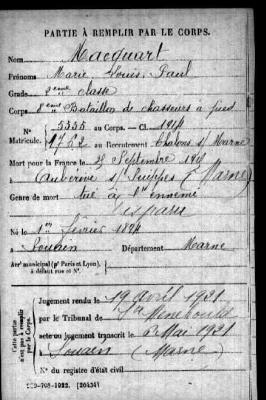 PARTIE À REMPLIR PAR LE CORPS.
Nom Macquart
Prénoms Marie Louis Paul
Grade 2eme classe
Corps Bataillon de chasseurs à pied
N° Matricule. 5335 au Corps. — Cl. 1914
1762 au Recrutement Châlons s/ Marne
Mort pour la France le Septembre
à Aubérive s/ Suippes (Marne)
Genre de mort tué à l'ennemi
disparu
Né le 1er février 1894
à Souain Département Marne
Arrt municipal (pr Paris et Lyon),
à défaut rue et N°.
Cette partie n'est pas à remplir par le Corps.
Jugement rendu le 19 avril 1921
par le Tribunal de Ste Menehould
acte ou jugement transcrit le 6 Mai 1921
à Souain (Marne)
N° du registre d'état civil
-708-1922. [26434]